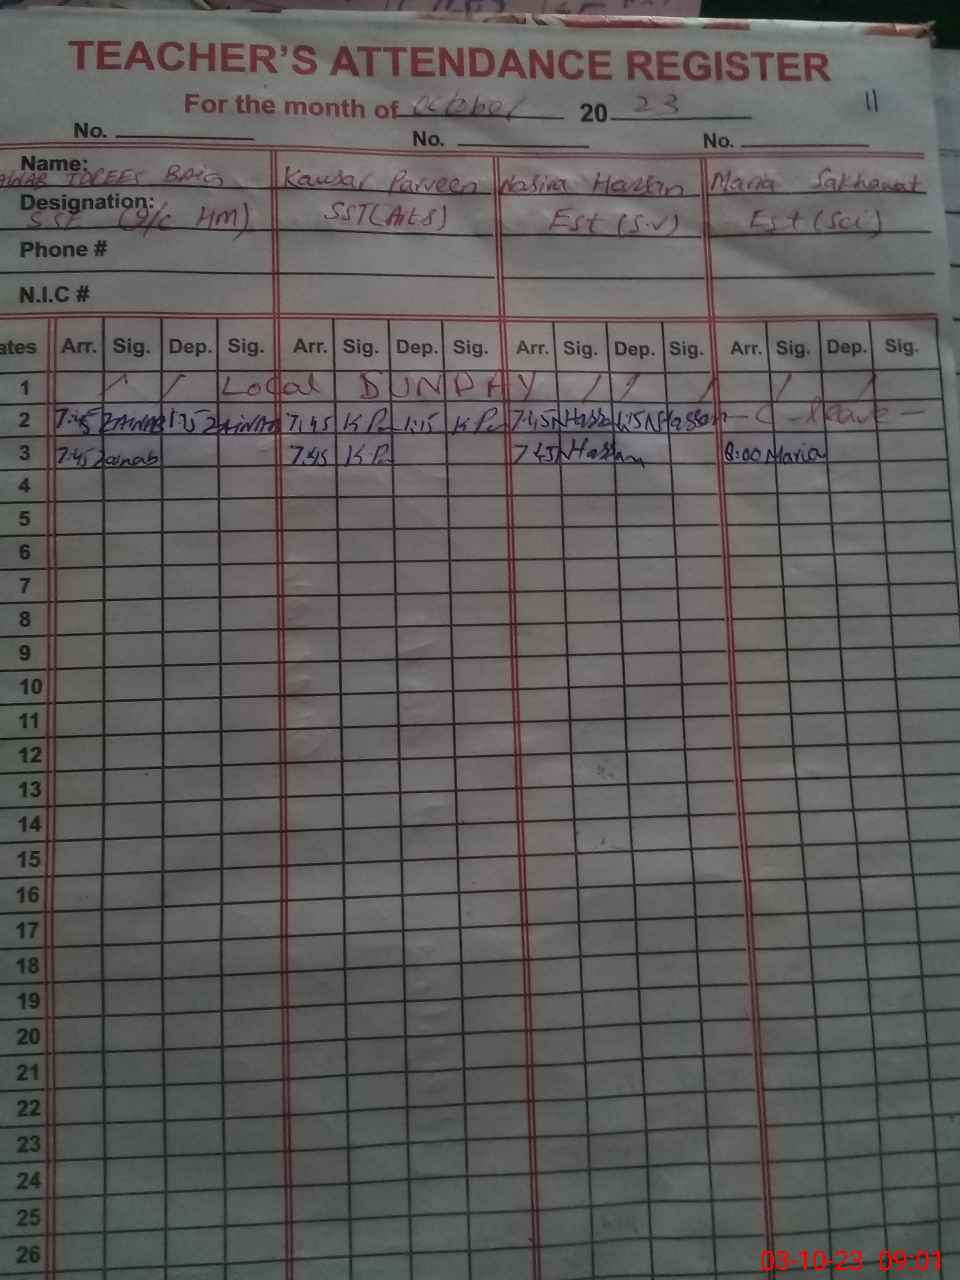 TEACHER'S ATTENDANCE REGISTER
For the month of October 2023 11
No. No. No.
Name: BAIG Kausar Parveen Nasira Hassan Maria Sakhawat
Designation: SST (I/c HM) SST(Arts) Est (S.V) Est (Sci)
Phone #
N.I.C #
ates Arr. Sig. Dep. Sig. Arr. Sig. Dep. Sig. Arr. Sig. Dep. Sig. Arr. Sig. Dep. Sig.
1 / / Local SUNDAY / / / / /
2 7:45 ZAINAB ZAINAB 7:45 K.P 1:15 K.P 7:45 NHassan 1:15 NHassan — C - leave —
3 7:45 Zainab 7:45 K.P 7:45 NHassan 8:00 Maria
4
5
6
7
8
9
10
11
12
13
14
15
16
17
18
19
20
21
22
23
24
25
26
03-10-23 09:01